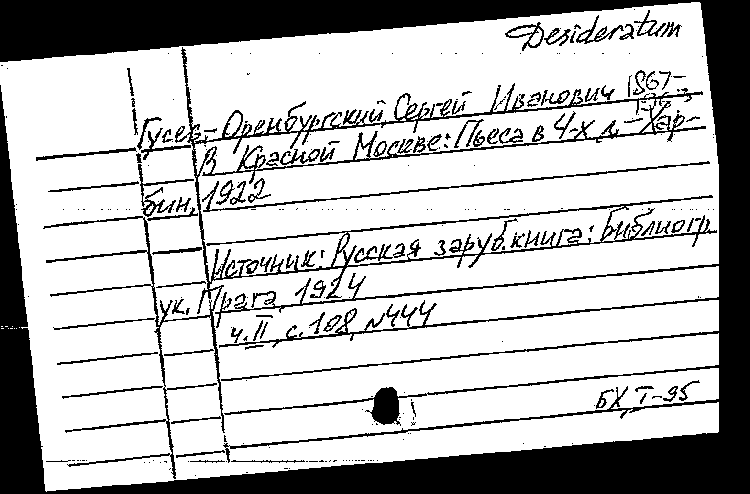 Desideratum
Гусев-Оренбургский, Сергей Иванович 1867-
В Красной Москве: Пьеса в 4-х д. - Хар-
бин, 1922
Источник: Русская заруб. книга: Библиогр.
ук. Прага, 1924
ч. II, с. 108, №444
БХ, I-95